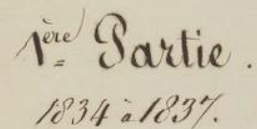 1ère Partie.
1834 à 1837.